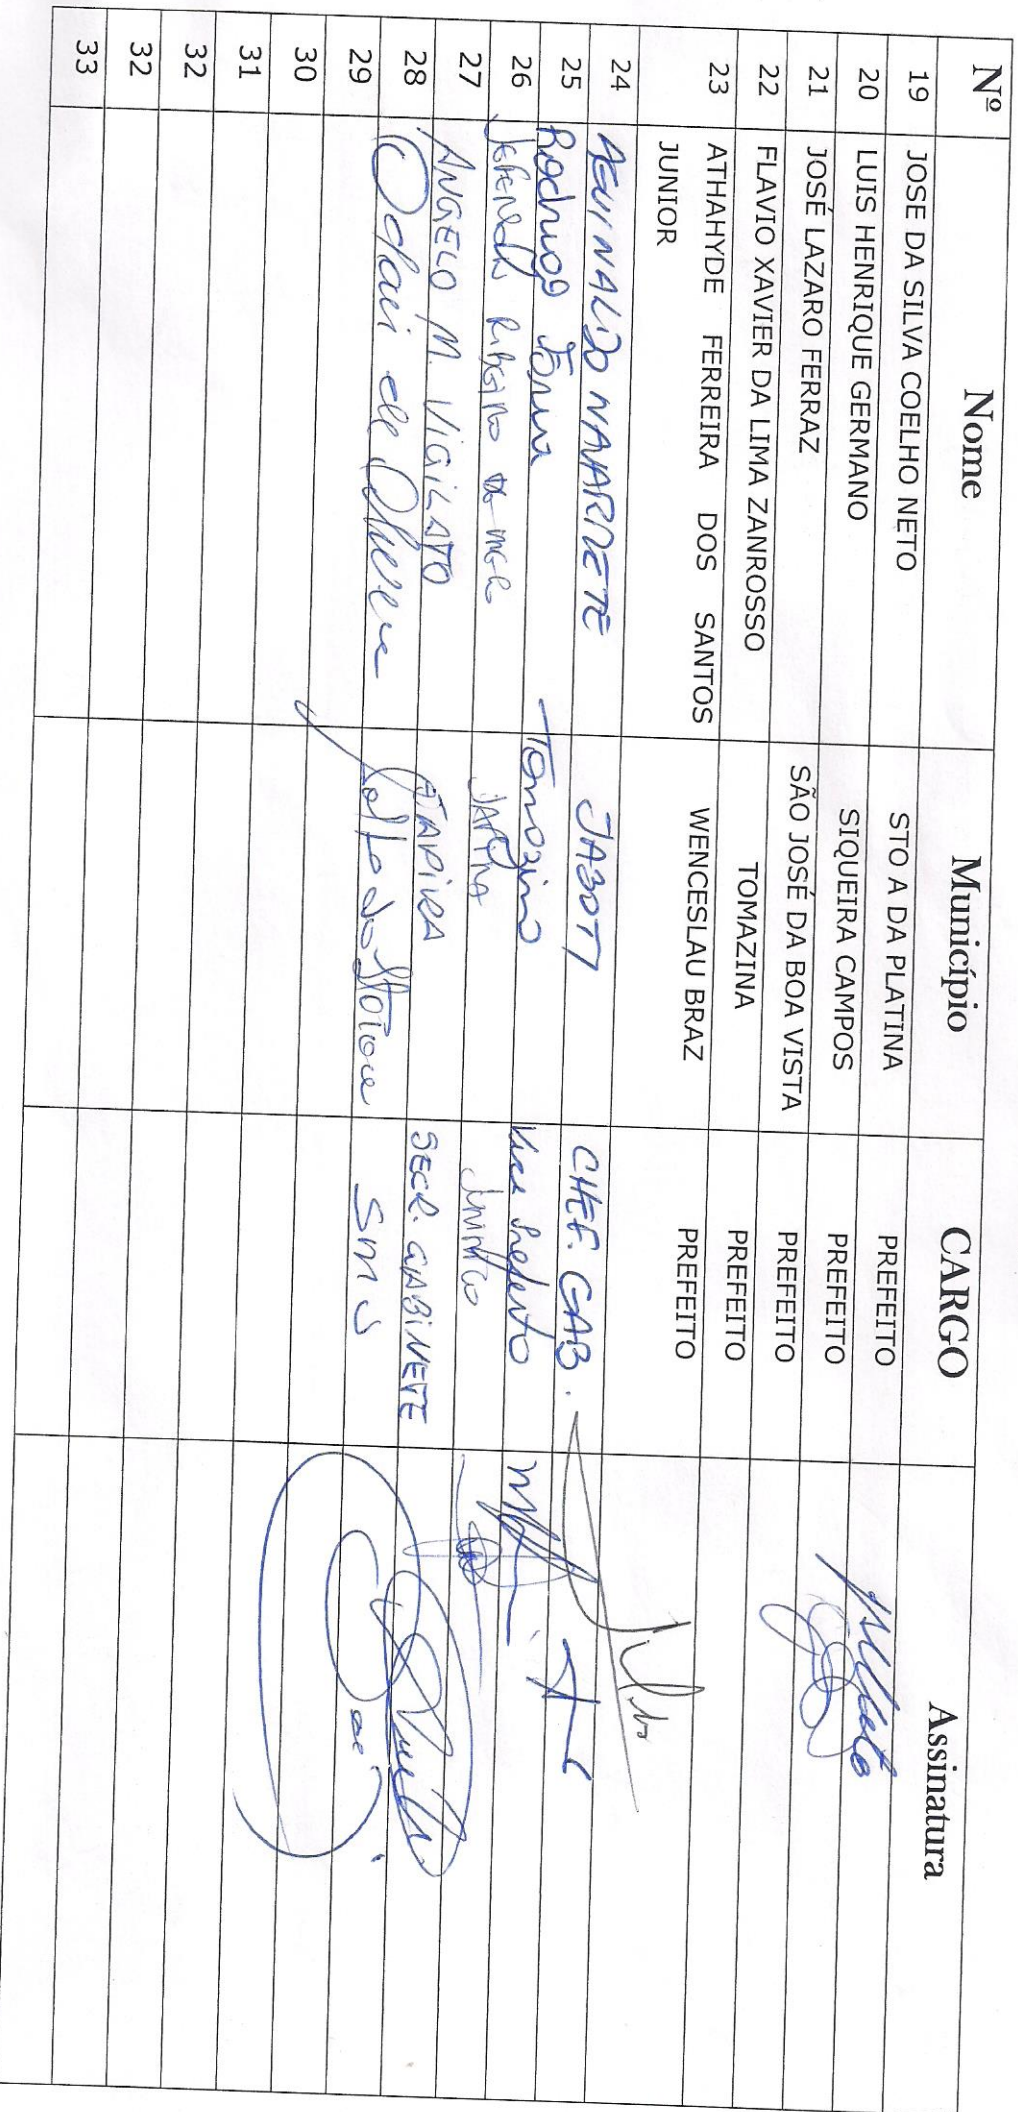 Nº Nome Município CARGO Assinatura
19 JOSE DA SILVA COELHO NETO STO A DA PLATINA PREFEITO
20 LUIS HENRIQUE GERMANO SIQUEIRA CAMPOS PREFEITO
21 JOSÉ LAZARO FERRAZ SÃO JOSÉ DA BOA VISTA PREFEITO
22 FLAVIO XAVIER DA LIMA ZANROSSO TOMAZINA PREFEITO
23 ATHAHYDE FERREIRA DOS SANTOS WENCESLAU BRAZ PREFEITO
JUNIOR
24 AGUINALDO NAVARRETE JABOTI CHEF. GAB.
25 Rodrigo Tomazina Vice Prefeito
26 Ribeiro de JAPIRA
27 ANGELO M. VIGILATO SECR. GABINETE
28 de Oliveira Salto do Itararé SMS
29
30
31
32
32
33